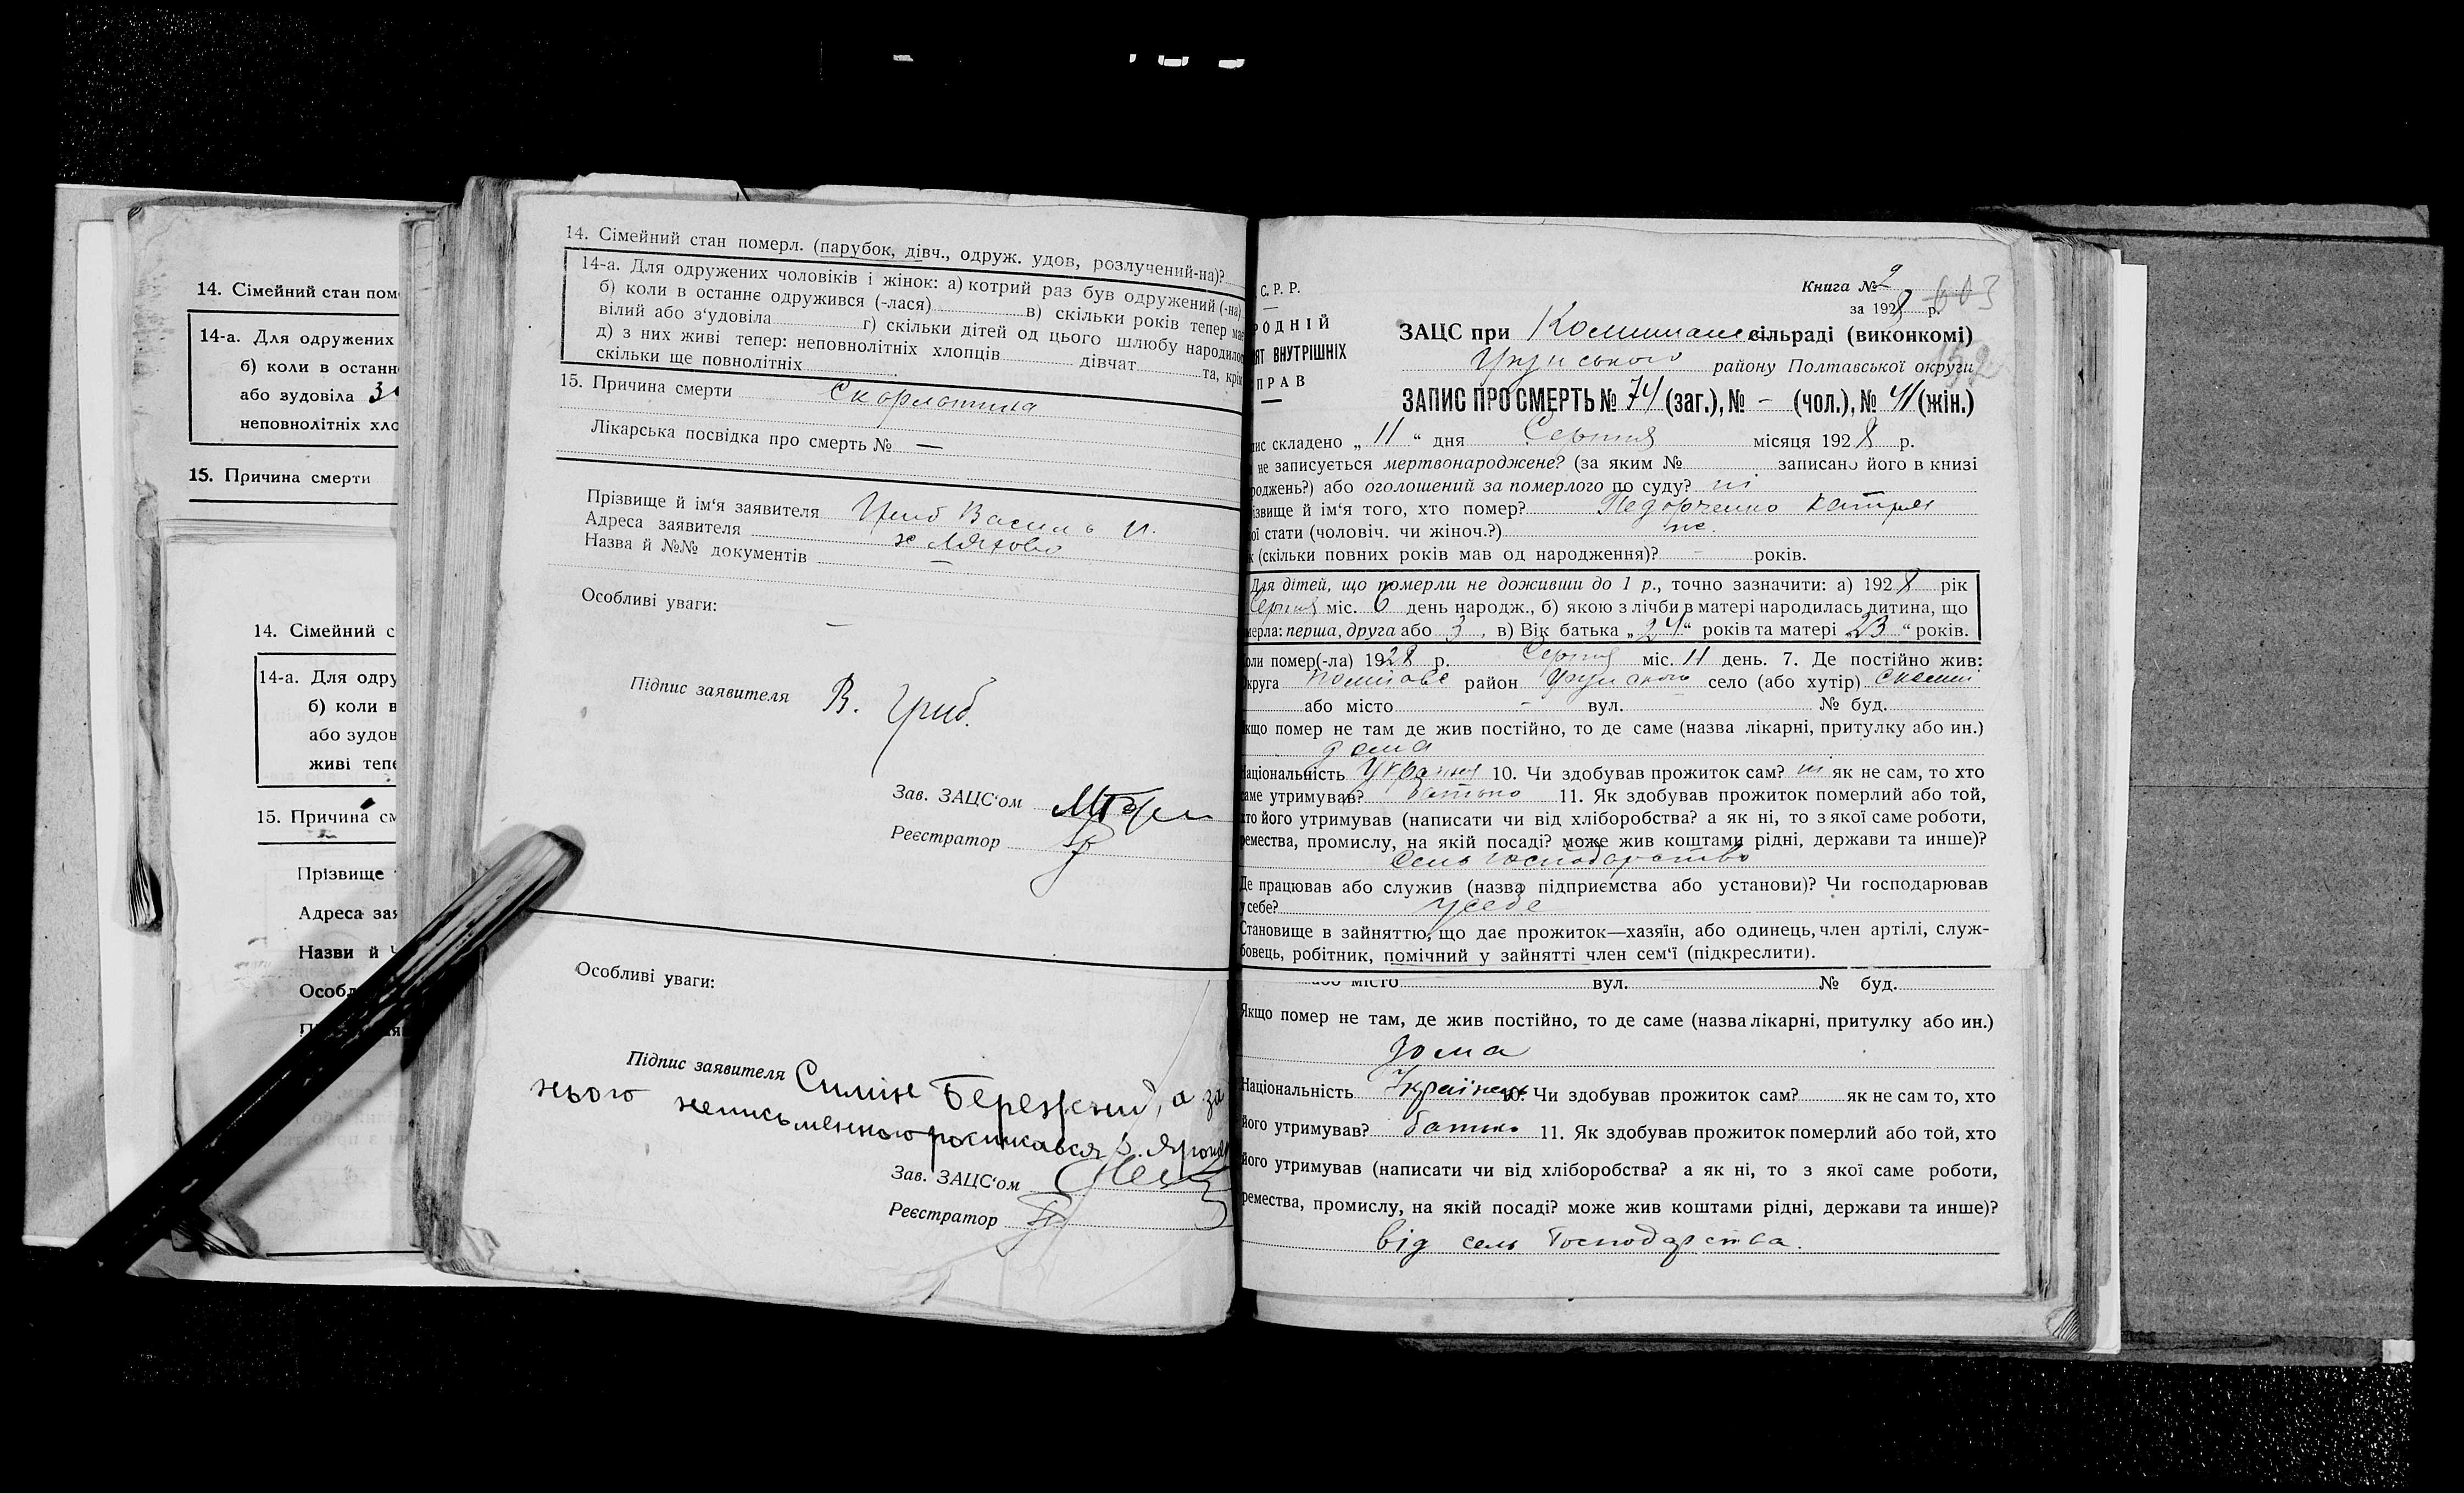 14. Сімейний стан пом
14-а. Для одружених
б) коли в останн
або зудовіла
неповнолітніх хло
15. Причина смерти
14. Сімейний с
14-а. Для одру
б) коли в
або зудов
живі тепе
15. Причина см
Прізвище
Адреса зая
Назви й
Особл
14. Сімейний стан померл. (парубок, дівч., одруж. удов, розлучений-на)?
14-а. Для одружених чоловіків і жінок: а) котрий раз був одружений (-на)
б) коли в останнє одружився (-лася) в) скільки років тепер має
вілий або з'удовіла г) скільки дітей од цього шлюбу народилос
д) з них живі тепер: неповнолітніх хлопців дівчат та, крім
скільки ще повнолітніх .
15. Причина смерти Скорлатина
Лікарська посвідка про смерть № —
Прізвище й ім'я заявителя Гриб Василь И.
Адреса заявителя х Ляхово
Назва й №№ документів —
Особливі уваги:
—
Підпис заявителя В. Гриб.
Зав. ЗАЦС'ом
Реєстратор
Особливі уваги:
Підпис заявителя Симін Бережний, а за
нього неписьменного росписався
Зав. ЗАЦС'ом
Реєстратор
Книга № 2
за 1928 р. 603
С. Р. Р.
РОДНІЙ
ЯТ ВНУТРІШНІХ
ПРАВ
ЗАЦС при сільраді (виконкомі)
району Полтавської округи
ЗАПИС ПРО СМЕРТЬ № 74 (заг.), № - (чол.), № 41 (жін.)
пис складено „ 11 “ дня Серпня місяця 1928 р.
не записується мертвонароджене? (за яким № записано його в книзі
роджень?) або оголошений за померлого по суду? ні
ізвище й ім'я того, хто помер? Федорченко Катря
ої стати (чоловіч. чи жіноч.?) ж.
к (скільки повних років мав од народження)? - років.
Для дітей, що померли не доживши до 1 р., точно зазначити: а) 1928 рік
Серпня міс. 6 день народж., б) якою з лічби в матері народилась дитина, що
мерла: перша, друга або 3, в) Вік батька „24“ років та матері 23 “ років.
оли помер(-ла) 1928 р. Серпня міс. 11 день. 7. Де постійно жив:
круга Полтавс район село (або хутір)
або місто - вул. № буд.
кщо помер не там де жив постійно, то де саме (назва лікарні, притулку або ин.)
дома
Національність Україн 10. Чи здобував прожиток сам? ні як не сам, то хто
саме утримував? батько 11. Як здобував прожиток померлий або той,
хто його утримував (написати чи від хліборобства? а як ні, то з якої саме роботи,
ремества, промислу, на якій посаді? може жив коштами рідні, держави та инше)?
сель господарство
Де працював або служив (назва підприємства або установи)? Чи господарював
у себе? у себе
Становище в зайняттю, що дає прожиток—хазяїн, або одинець, член артілі, служ-
бовець, робітник, помічний у зайнятті член сем'ї (підкреслити).
або місто вул. № буд.
Якщо помер не там, де жив постійно, то де саме (назва лікарні, притулку або ин.)
дома
Національність Українець 10. Чи здобував прожиток сам? як не сам то, хто
його утримував? батько 11. Як здобував прожиток померлий або той, хто
його утримував (написати чи від хліборобства? а як ні, то з якої саме роботи,
ремества, промислу, на якій посаді? може жив коштами рідні, держави та инше)?
від сель господарства.